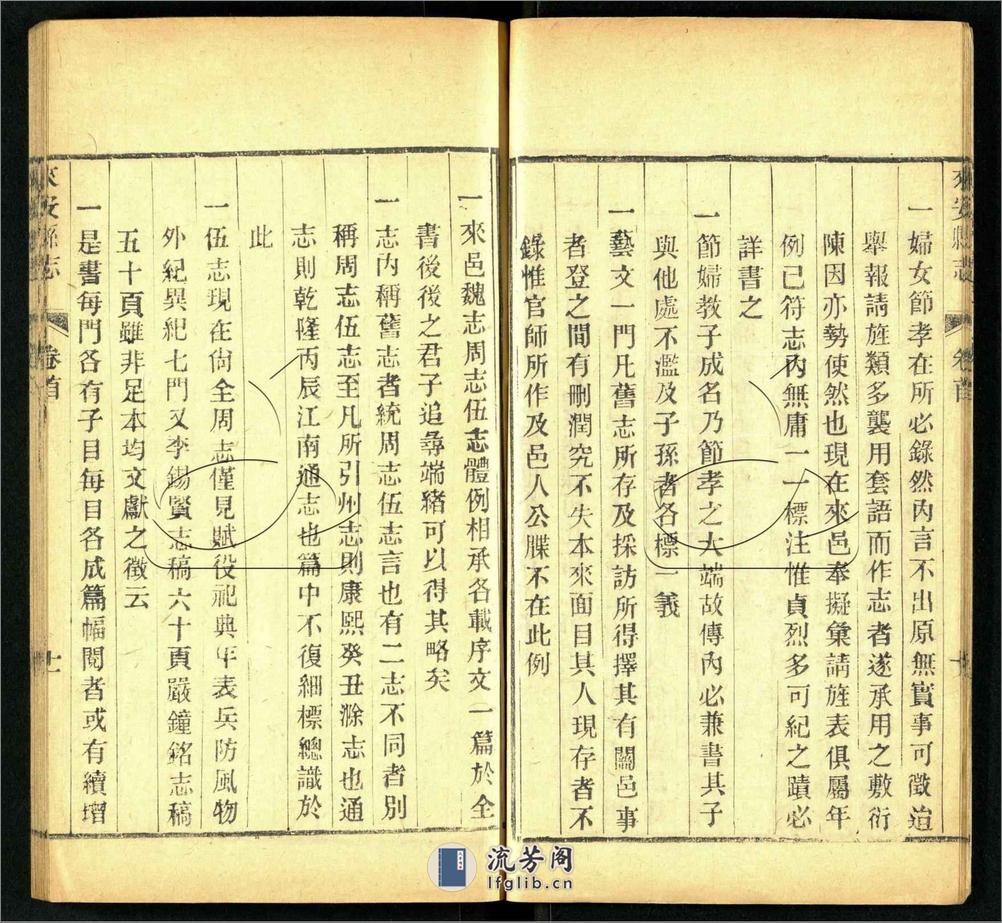 一婦女節孝在所必錄然內言不出原無實事可徵迨
舉報請旌類多襲用套語而作志者遂承用之敷衍
陳因亦勢使然也現在來邑奉擬彙請旌表俱屬年
例已符志內無庸一一標注惟貞烈多可紀之蹟必
詳書之
一節婦教子成名乃節孝之大端故傳內必兼書其子
與他處不濫及子孫者各標一義
一藝文一門凡舊志所存及採訪所得擇其有關邑事
者登之間有刪潤究不失本來面目其人現存者不
錄惟官師所作及邑人公牒不在此例
來安縣志
卷首
一來邑魏志周志伍志體例相承各載序文一篇於全
書後後之君子追尋端緒可以得其略矣
一志內稱舊志者統周志伍志言也有二志不同者別
稱周志伍志至凡所引州志則康熙癸丑滁志也通
志則乾隆丙辰江南通志也篇中不復細標總識於
此
一伍志現在尙全周志僅見賦役祀典年表兵防風物
外紀異紀七門又李錫賢志稿六十頁嚴鐘銘志稿
五十頁雖非足本均文獻之徵云
一是書每門各有子目每目各成篇幅閱者或有續增
來安縣志
卷首
十一
流芳阁
lfglib.cn